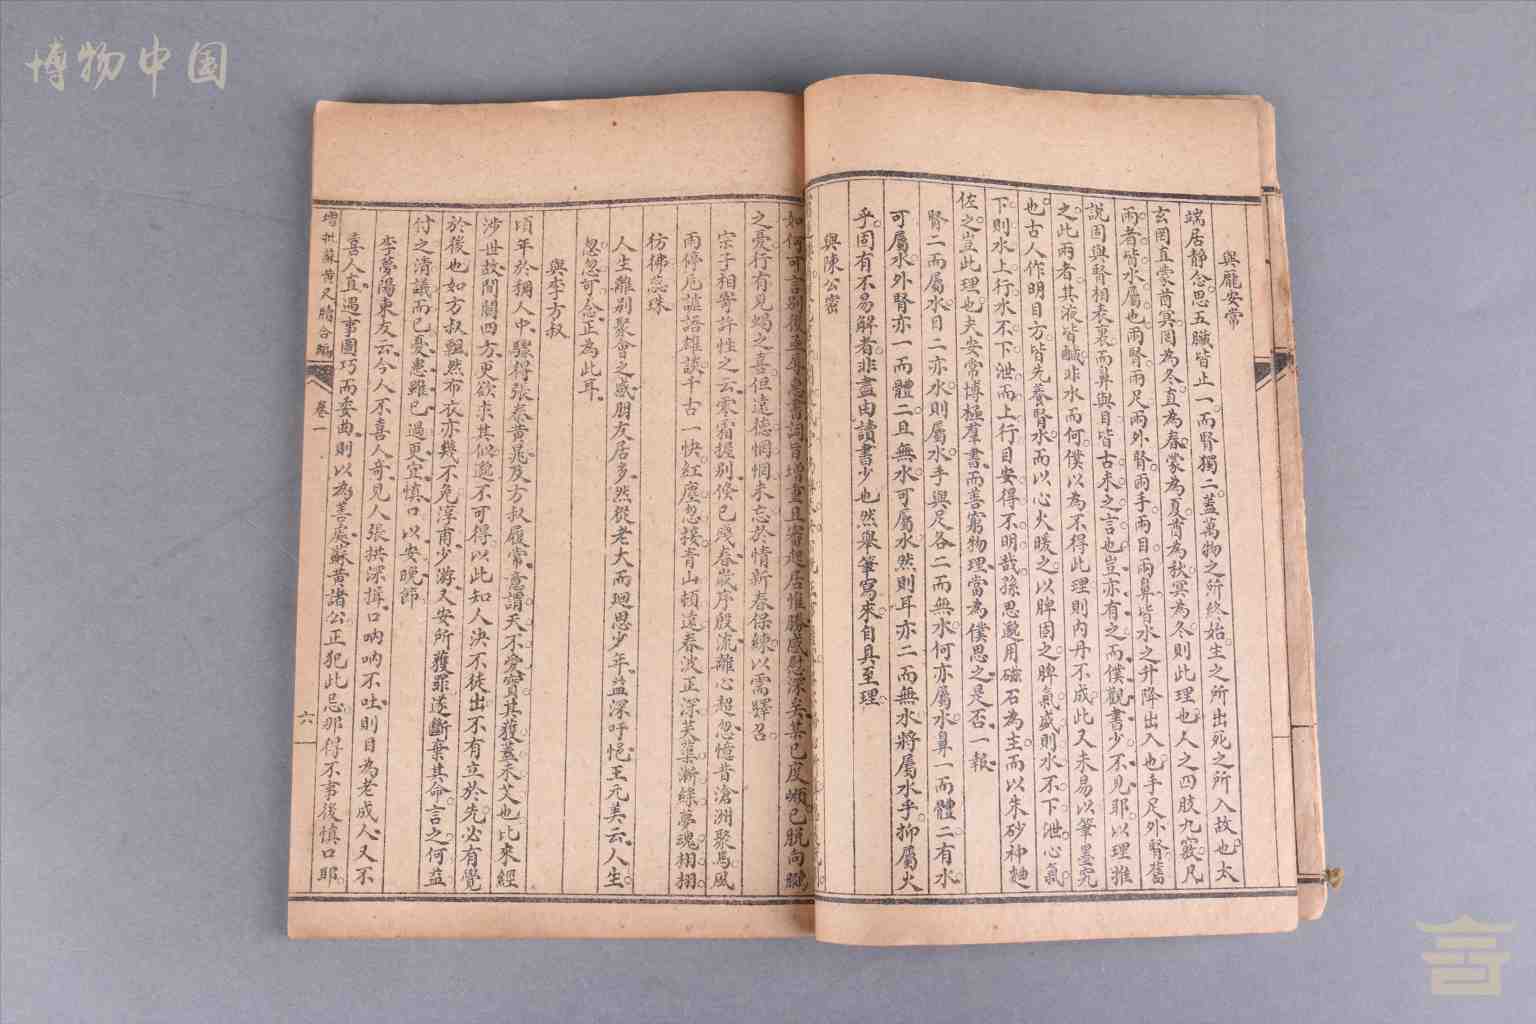 博物中国
與龐安常
端居靜念思五臟皆止一而腎獨二蓋萬物之所終始生之所出死之所入故也太
玄罔直蒙酋冥罔為冬直為春蒙為夏酋為秋冥為冬則此理也人之四肢九竅凡
兩者皆水屬也兩腎兩足兩外腎兩手兩目兩鼻皆水之升降出入也手足外腎舊
說固與腎相表裏而鼻與目皆古未之言也豈亦有之而僕觀書少不見耶以理推
之此兩者其液皆鹹非水而何僕以為不得此理則內丹不成此又未易以筆墨究
也古人作明目方皆先養腎水而以心火暖之以脾固之脾氣盛則水不下泄心氣
下則水上行水不下泄而上行目安得不明哉孫思邈用磁石為主而以朱砂神麯
佐之豈此理也夫安常博極羣書而善窮物理當為僕思之是否一報
腎二而屬水目二亦水則屬水手與足各二而無水何亦屬水鼻一而體二有水
可屬水外腎亦一而體二且無水可屬水然則耳亦二而無水將屬水乎抑屬火
乎固有不易解者非盡由讀書少也然舉筆寫來自具至理
與陳公密
如何可言別後
之憂行有見蝎之喜但遠德惘惘未忘於情新春保練以需驛召
宗子相寄許性之云寒霜握別倏已殘春嵗序殷流離心超忽憶昔滄洲聚馬風
雨停卮謔語雄談千古一快紅塵忽接青山頓遠春波正深芙蕖漸綠夢魂栩栩
彷彿蕊珠
人生離別聚會之感朋友居多然從老大而廻思少年益深呼悒王元美云人生
忽忽可念正為此耳
與李方叔
頃年於稠人中驟得張秦黃晁及方叔履常意謂天不愛寶其獲蓋未艾也比來經
涉世故間關四方更欲求其似邈不可得以此知人決不徒出不有立於先必有覺
於後也如方叔飄然布衣亦幾不免淳甫少游又安所獲罪遂斷棄其命言之何益
付之清議而已憂患雖已過更宜慎口以安晚節
李夢陽東友云今人不喜人奇見人張拱深揖口吶吶不吐則目為老成人又不
喜人直遇事圓巧而委曲則以為善處蘇黃諸公正犯此忌那得不事後慎口耶
增批蘇黃尺牘合編
卷一
六